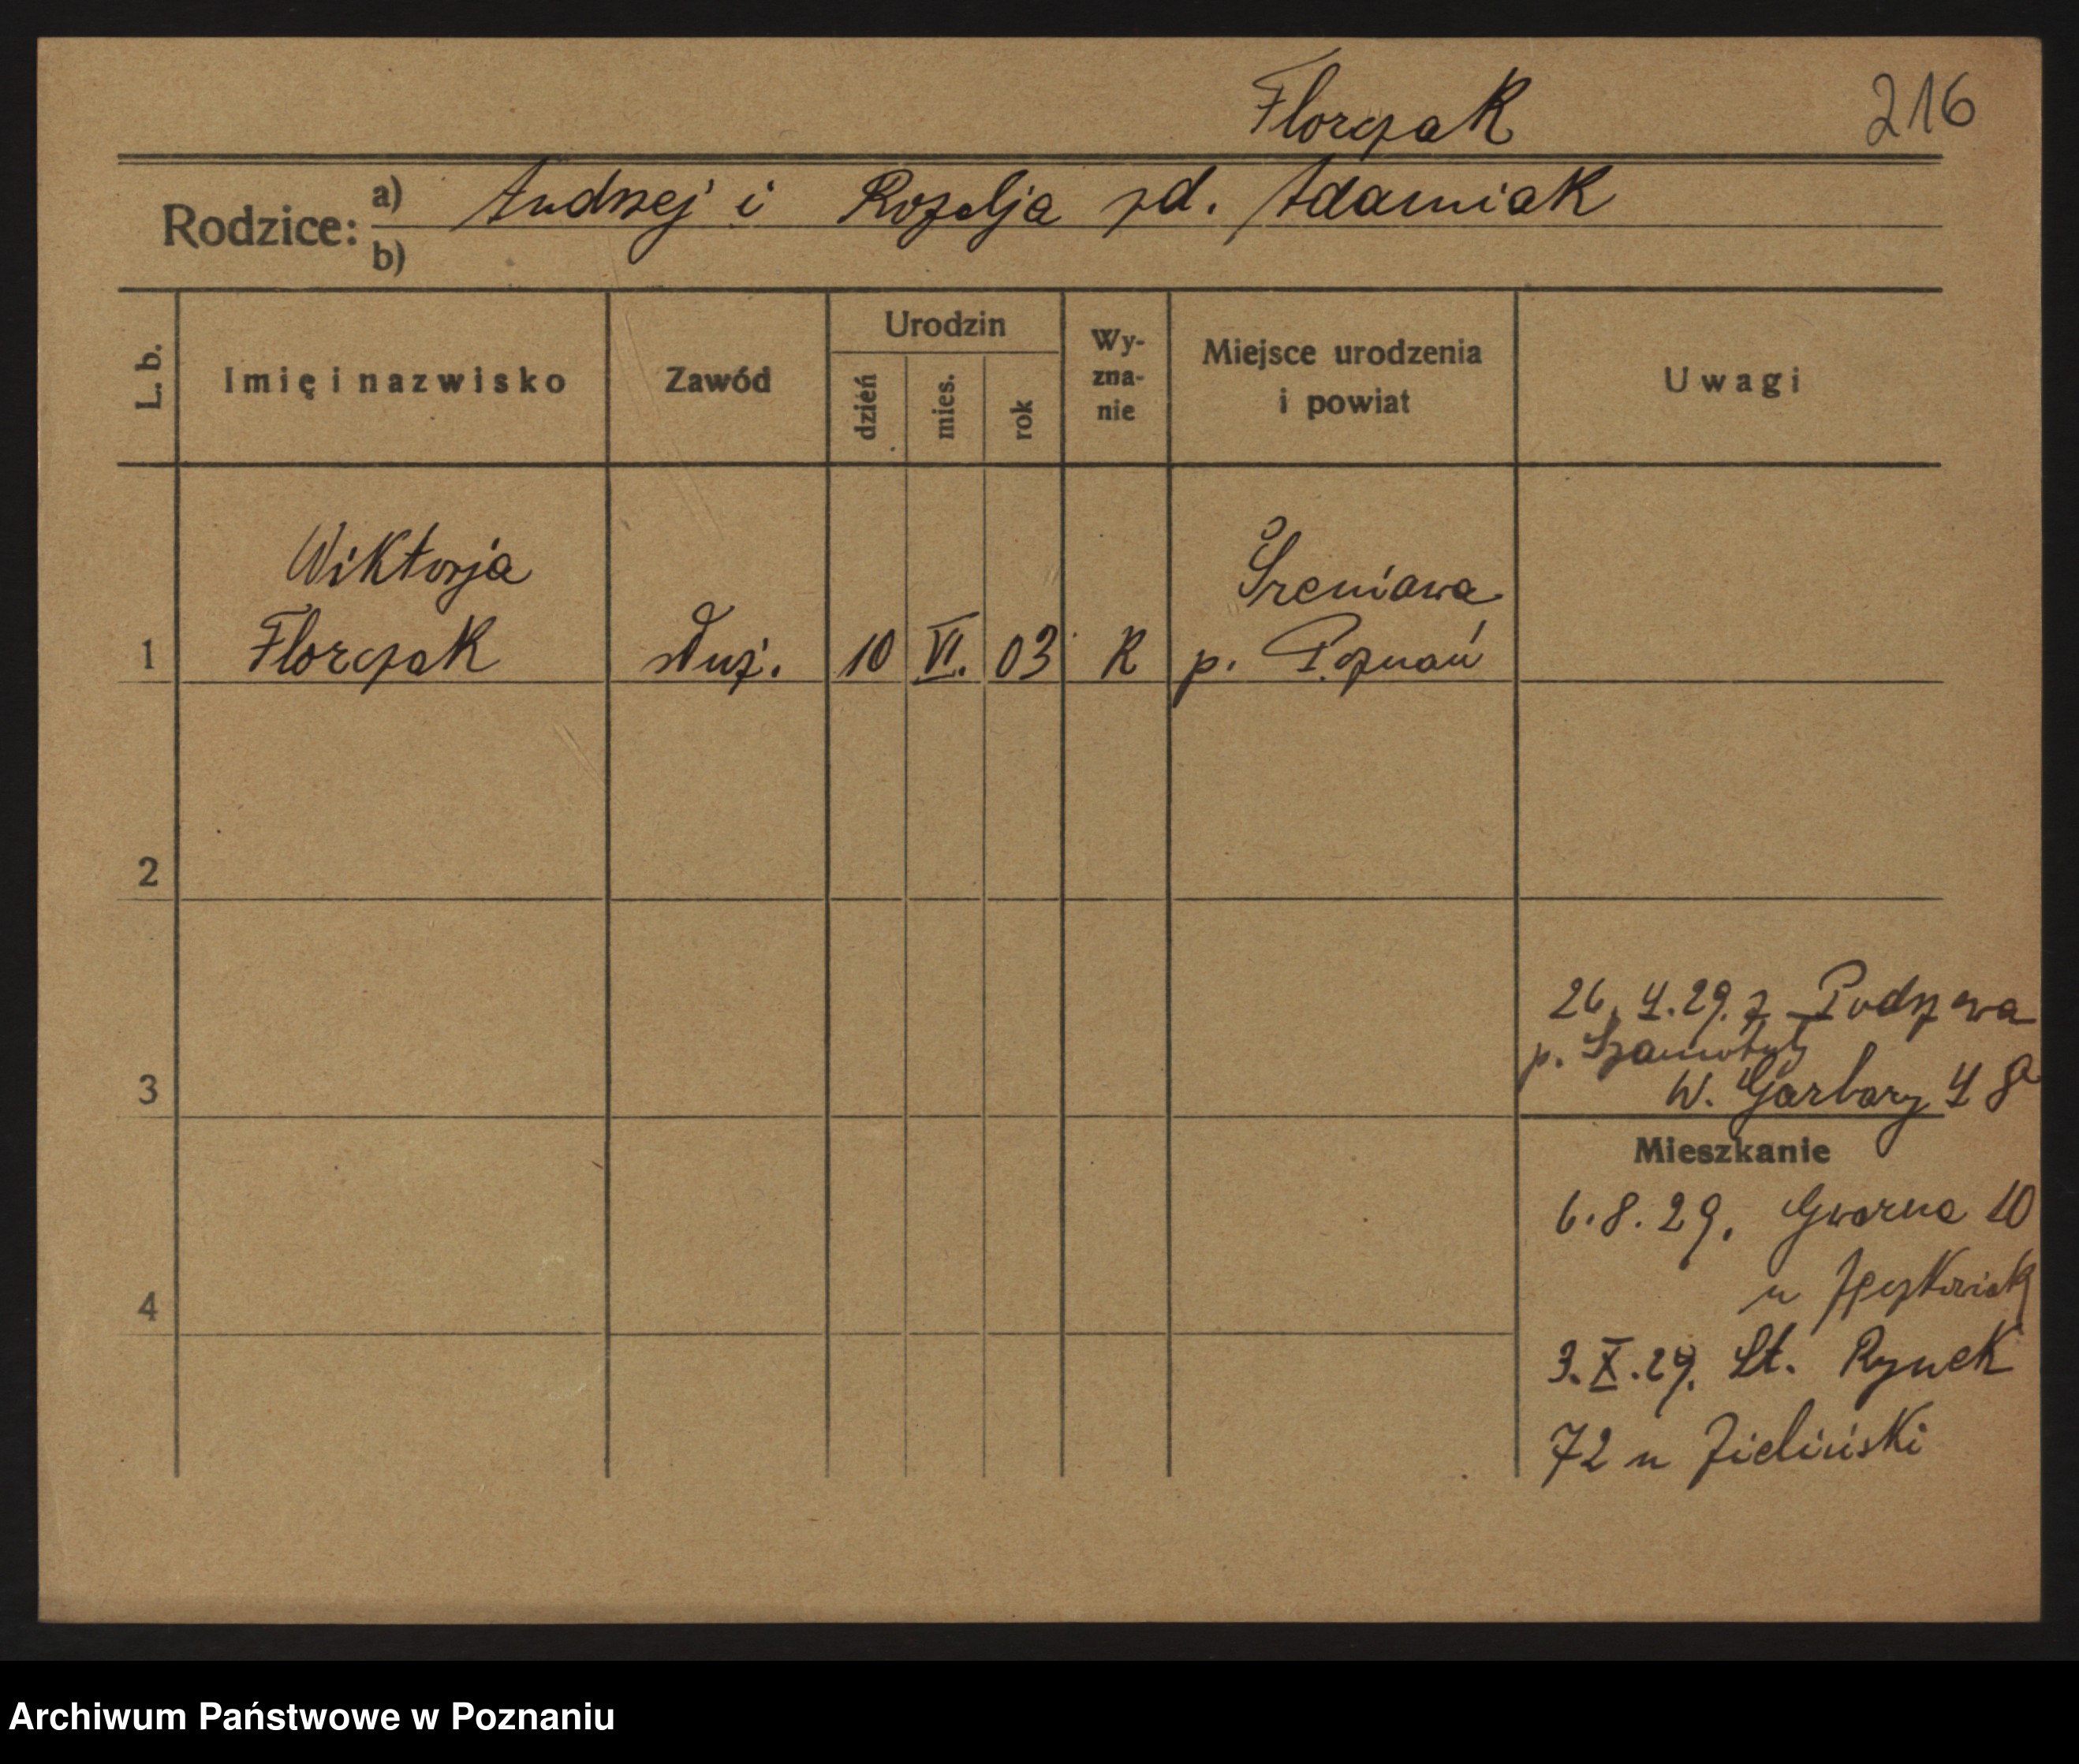 Florczak 216
Rodzice: a) Andrzej i Rozalja zd. Adamiak
b)
L. b. Imię i nazwisko Zawód Urodzin dzień mies. rok Wy- zna- nie Miejsce urodzenia i powiat Uwagi
Wiktorja
Florczak
1 służ. 10 VI. 03 R
Śreniawa
p. Poznań
2
26. 4. 29. z Podrzewa
p. Szamotuły
W. Garbary 48
3
Mieszkanie
6.8.29. Gwarna 10
u
4
3.X.29. St. Rynek
72 u Zieliński
Archiwum Państwowe w Poznaniu